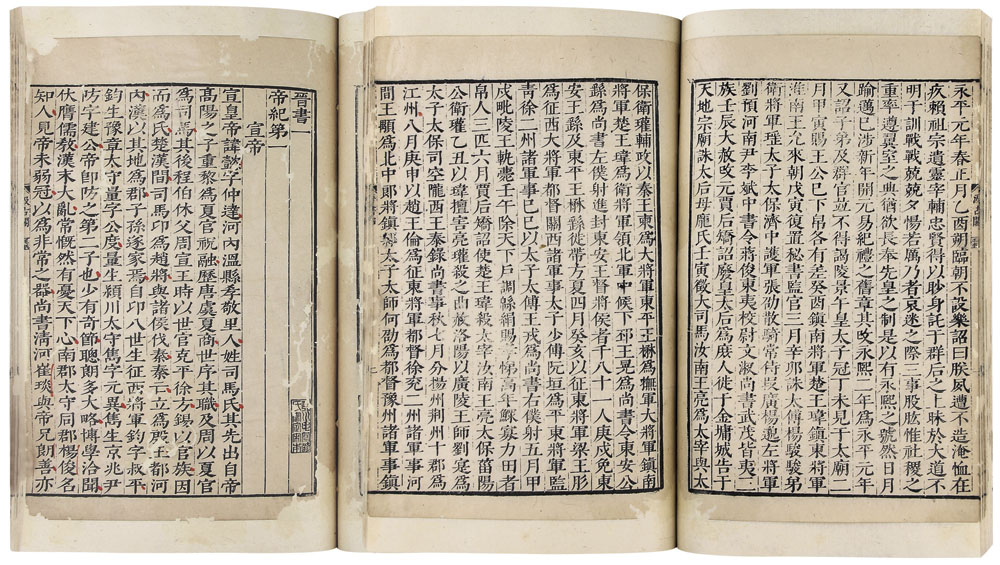 永平元年春正月乙酉朔臨朝不設樂詔曰朕夙遭不造淹恤在
疚賴祖宗遺靈宰輔忠賢得以眇身託于群后之上昧於大道不
明于訓戰戰兢兢夕惕若厲乃者哀迷之際三事股肱惟社稷之
重率遵翼室之典猶欲長奉先皇之制是以有永熙之號然日月
踰邁已涉新年開元易紀禮之舊章其改永熙二年爲永平元年
又詔子弟及群官並不得謁陵景午皇太子冠丁未見于太廟二
月甲寅賜王公已下帛各有差癸酉鎮南將軍楚王瑋鎮東將軍
淮南王允來朝戊寅復置秘書監官三月辛卯誅太傅楊駿駿弟
衛將軍珧太子太保濟中護軍張劭散騎常侍段廣楊邈左將軍
劉預河南尹李斌中書令蔣俊東夷校尉文淑尚書武茂皆夷三
族壬辰大赦改元賈后矯詔廢皇太后爲庶人徙于金墉城告于
天地宗廟誅太后母龐氏壬寅徵大司馬汝南王亮爲太宰與太
保衛瓘輔政以秦王柬爲大將軍東平王楙爲撫軍大將軍鎮南
將軍楚王瑋爲衛將軍領北軍中候下邳王晃爲尚書令東安公
繇爲尚書左僕射進封東安王督將侯者千八十一人庚戌免東
安王繇及東平王楙繇徙帶方夏四月癸亥以征東將軍梁王肜
爲征西大將軍都督關西諸軍事太子少傅阮垣爲平東將軍監
青徐二州諸軍事己巳以太子太傅王戎爲尚書右僕射五月甲
戌毗陵王軌薨壬午除天下戶調緜絹賜孝悌高年鰥寡力田者
帛人三匹六月賈后矯詔使楚王瑋殺太宰汝南王亮太保菑陽
公衛瓘乙丑以瑋擅害亮瓘殺之曲赦洛陽以廣陵王師劉寔爲
太子太保司空隴西王泰錄尚書事秋七月分揚州荊州十郡爲
江州八月庚申以趙王倫爲征東將軍都督徐兗二州諸軍事河
間王顒爲北中郎將鎮鄴太子太師何劭爲都督豫州諸軍事鎮
晉書一
帝紀第一
宣帝
宣皇帝諱懿字仲達河內溫縣孝敬里人姓司馬氏其先出自帝
高陽之子重黎爲夏官祝融歷唐虞夏商世序其職及周以夏官
爲司馬其後程伯休父周宣王時以世官克平徐方錫以官族因
而爲氏楚漢間司馬卬爲趙將與諸侯伐秦秦亡立爲殷王都河
內漢以其地爲郡子孫遂家焉自卬八世生征西將軍鈞字叔平
鈞生豫章太守量字公度量生潁川太守雋字元異雋生京兆尹
防字建公帝卽防之第二子也少有奇節聰朗多大略博學洽聞
伏膺儒教漢末大亂常慨然有憂天下心南郡太守同郡楊俊名
知人見帝未弱冠以爲非常之器尚書清河崔琰與帝兄朗善亦